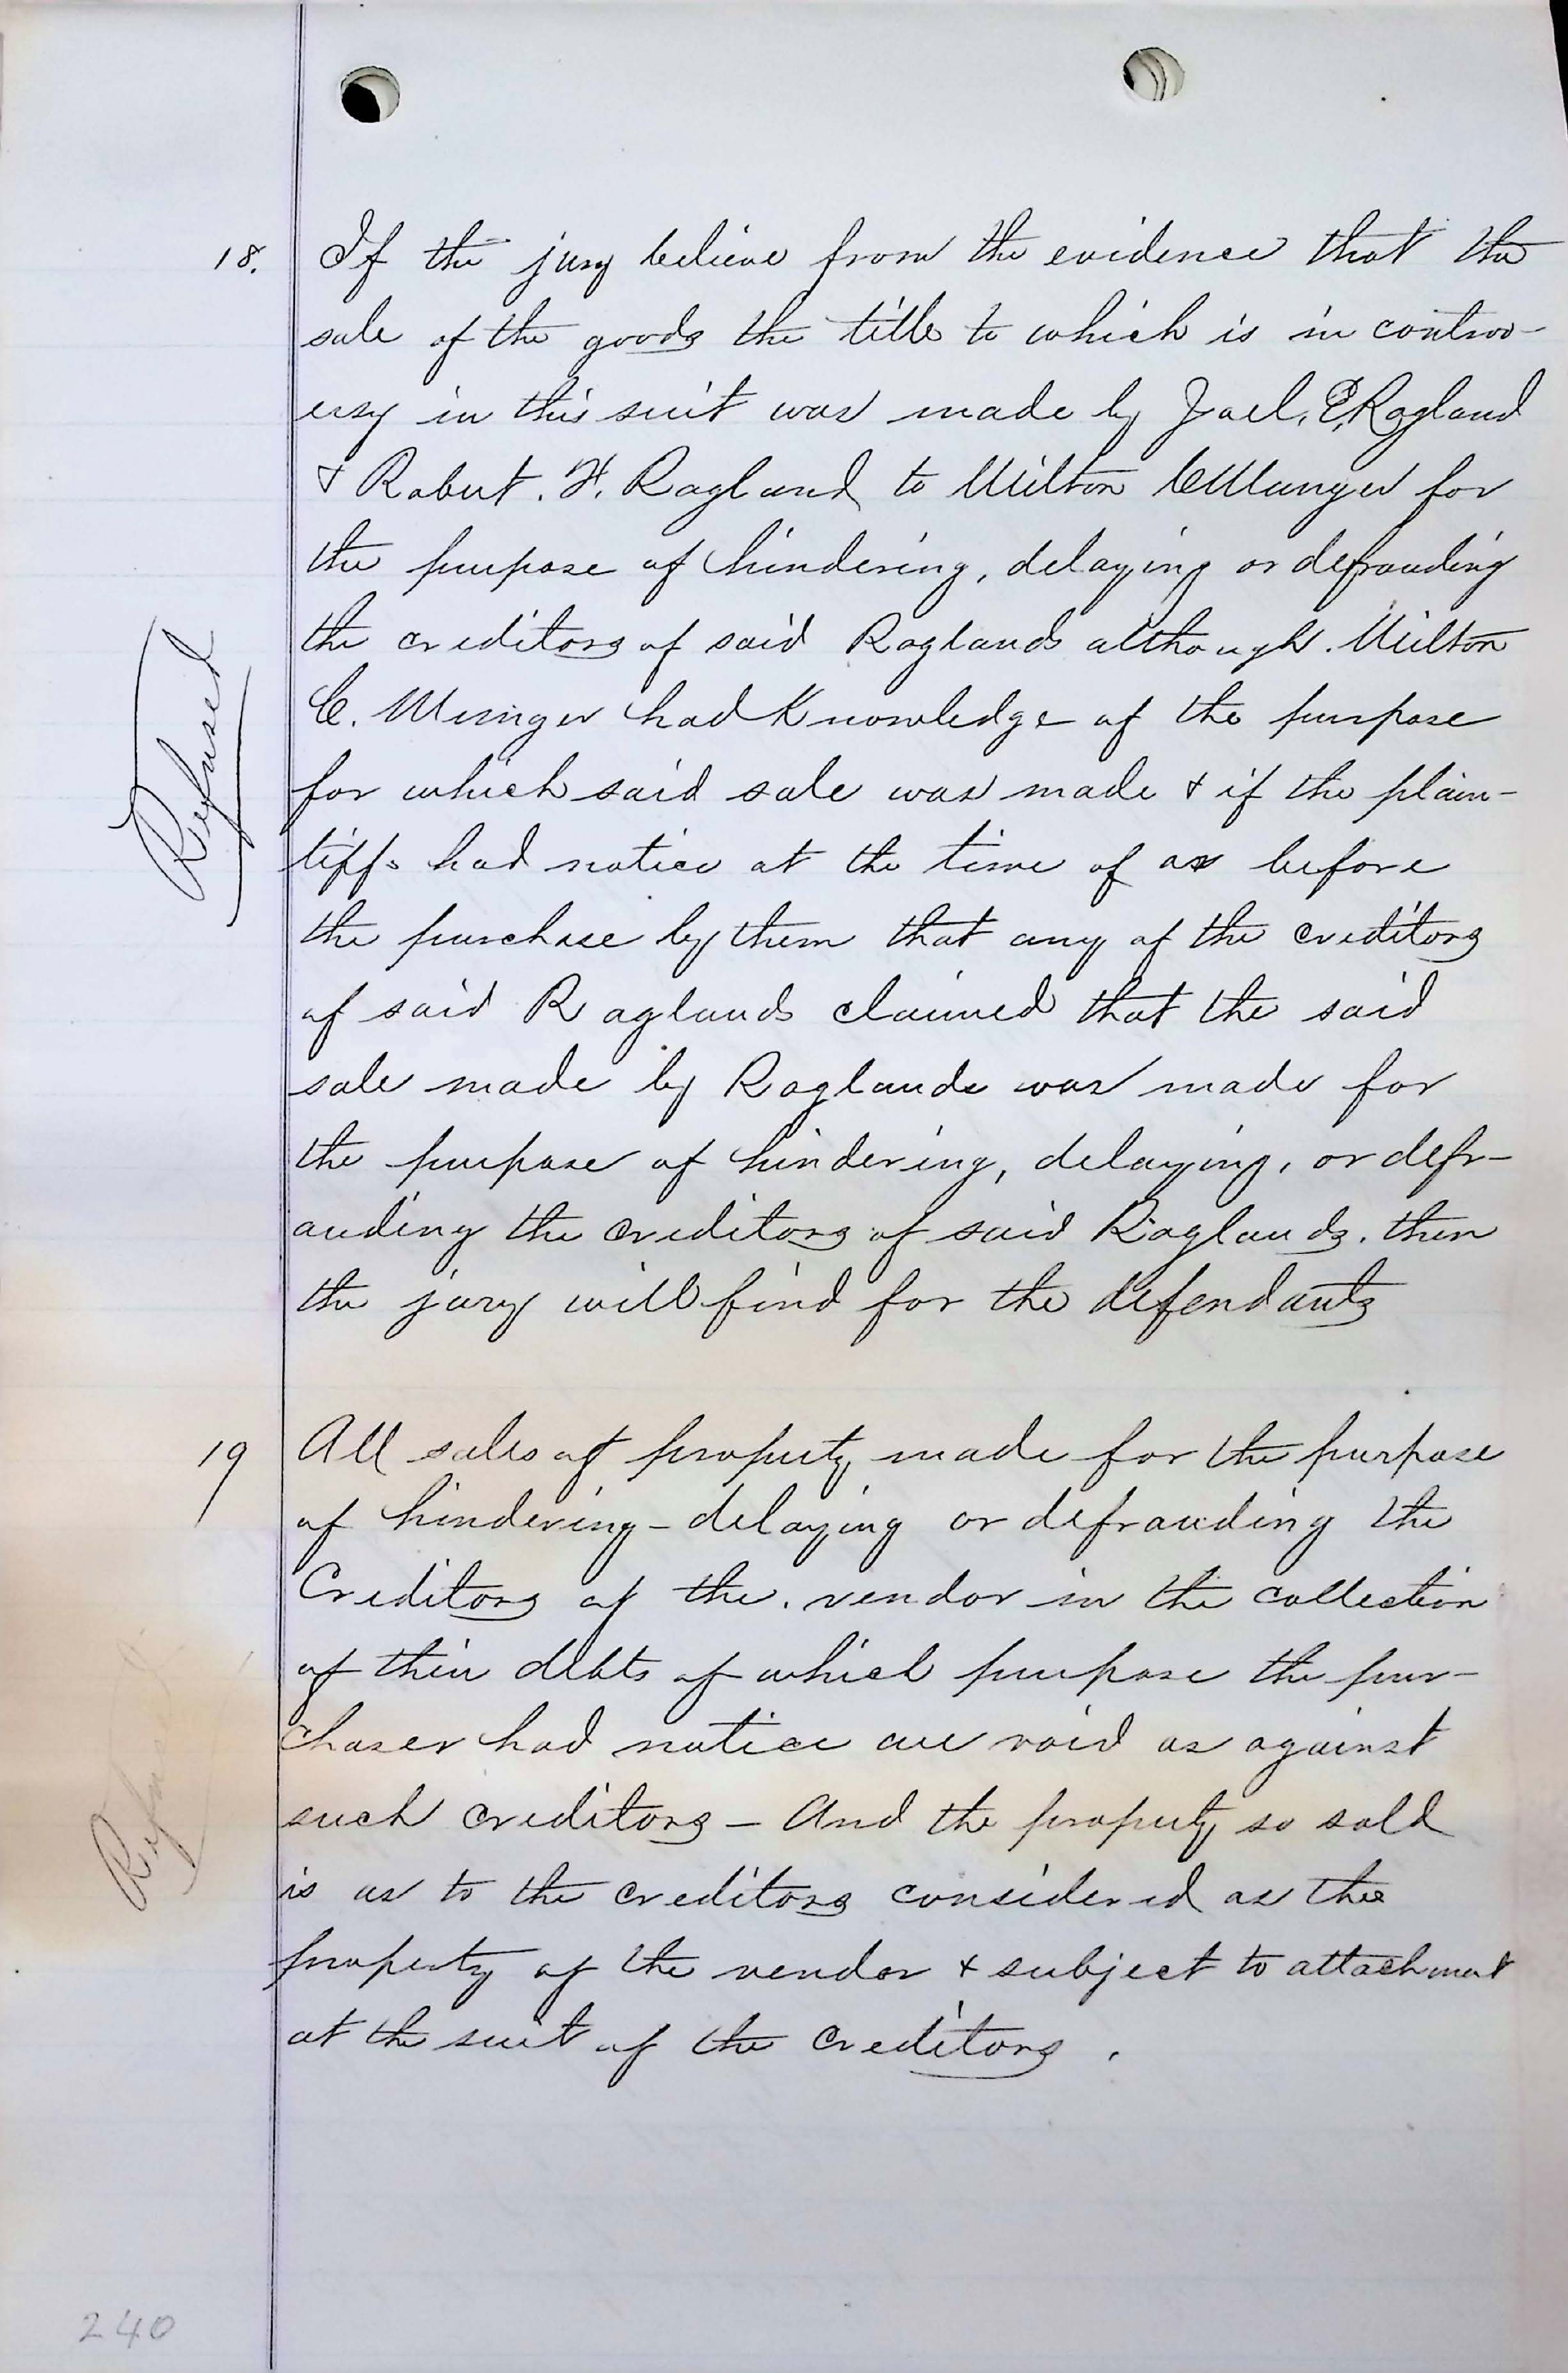 18. If the jury believe from the evidence that the
sale of the goods the title to which is in contro-
ersy in this suit was made by Joel. E. Ragland
& Robert. H. Ragland to Milton C Munger for
the purpose of hindering, delaying or defrauding
the creditors of said Raglands although. Milton
C. Munger had Knowledge of the purpose
for which said sale was made & if the plain-
tiffs had notice at the time of or before
the purchase by them that any of the creditors
of said Raglands claimed that the said
sale made by Raglands was made for
the purpose of hindering, delaying, or defr-
auding the creditors of said Raglands. then
the jury will find for the defendants
Refused
19 All sales of property made for the purpose
of hindering - delaying or defrauding the
Creditors of the. vendor in the collection
of their debts of which purpose the pur-
chaser had notice are void as against
such creditors - And the property so sold
is as to the creditors considered as the
property of the vendor & subject to attachment
at the suit of the Creditors.
Refused
240